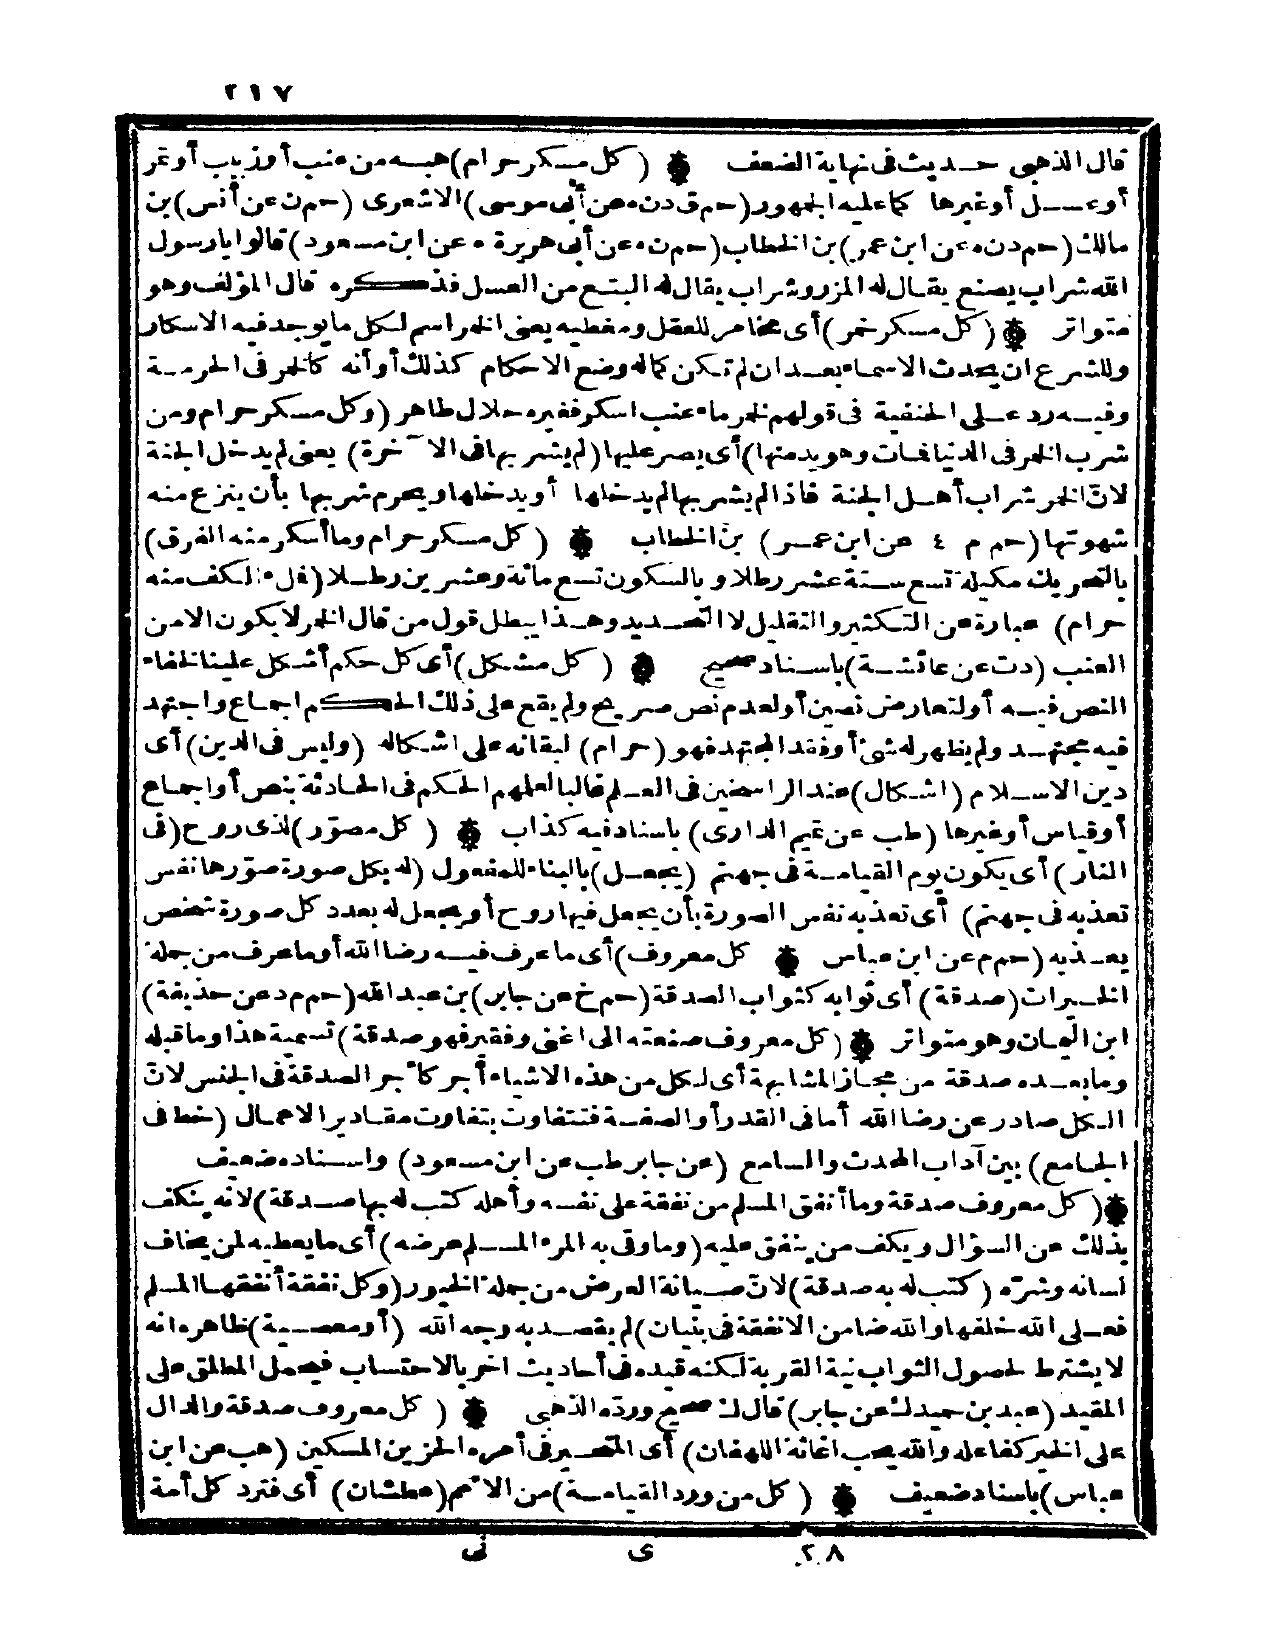 ٢١٧
قال الذهبى حديث فى نهاية الضعف ۞ (كل مسكر حرام) هبه من عنب أو زبيب أو تمر
أو عسل أو غيرها كما عليه الجمهور (حم ق د ن ه عن أبى موسى) الاشعرى (حم ن عن أنس) بن
مالك (حم د ن ه عن ابن عمر) بن الخطاب (حم ن ه عن أبى هريرة ه عن ابن مسعود) قالوا يا رسول
الله شراب يصنع يقال له المزر وشراب يقال له البتع من العسل فذكره قال المؤلف وهو
متواتر ۞ (كل مسكر خمر) أى مخامر للعقل ومغطيه يعنى الخمر اسم لكل ما يوجد فيه الاسكار
وللشرع ان يحدث الاسماء بعد ان لم تكن كما له وضع الاحكام كذلك أو أنه كالخمر فى الحرمة
وفيه رد على الحنفية فى قولهم الخمر ماء عنب اسكر فغيره حلال طاهر (وكل مسكر حرام ومن
شرب الخمر فى الدنيا فمات وهو يدمنها) أى يصر عليها (لم يشربها فى الآخرة) يعنى لم يدخل الجنة
لانّ الخمر شراب أهل الجنة فاذا لم يشربها لم يدخلها أو يدخلها ويحرم شربها بأن ينزع منه
شهوتها (حم م ٤ عن ابن عمر) بن الخطاب ۞ (كل مسكر حرام وما أسكر منه الفرق)
بالتحريك مكيلة تسع ستة عشر رطلا وبالسكون تسع مائة وعشرين رطلا (فملء الكف منه
حرام) عبارة عن التكثير والتقليل لا التحديد وهذا يبطل قول من قال الخمر لا يكون الا من
العنب (د ت عن عائشة) باسناد صحيح ۞ (كل مشكل) أى كل حكم أشكل علينا لخفاء
النص فيه أو لتعارض نصين أو لعدم نص صريح ولم يقع على ذلك الحكم اجماع واجتهد
فيه مجتهد ولم يظهر له شئ أو فقد المجتهد فهو (حرام) لبقائه على اشكاله (وليس فى الدين) أى
دين الاسلام (اشكال) عند الراسخين فى العلم غالبا لعلمهم الحكم فى الحادثة بنص أو اجماع
أو قياس أو غيرها (طب عن تميم الدارى) باسناد فيه كذاب ۞ (كل مصوّر) لذى روح (فى
النار) أى يكون يوم القيامة فى جهنم (يجعل) بالبناء للمفعول (له بكل صورة صوّرها نفس
تعذبه فى جهنم) أى تعذبه نفس الصورة بأن يجعل فيها روح أو يجعل له بعدد كل صورة شخص
يعذبه (حم م عن ابن عباس ۞ كل معروف) أى ما عرف فيه رضا الله أو ما عرف من جملة
الخيرات (صدقة) أى ثوابه كثواب الصدقة (حم خ عن جابر) بن عبد الله (حم م د عن حذيفة)
ابن اليمان وهو متواتر ۞ (كل معروف صنعته الى غنى وفقير فهو صدقة) تسمية هذا وما قبله
وما بعده صدقة من مجاز المشابهة أى لكل من هذه الاشياء أجر كأجر الصدقة فى الجنس لانّ
الكل صادر عن رضا الله أما فى القدر أو الصفة فتتفاوت بتفاوت مقادير الاعمال (خط فى
الجامع) بين آداب المحدث والسامع (عن جابر طب عن ابن مسعود) واسناده ضعيف
۞ (كل معروف صدقة وما أنفق المسلم من نفقة على نفسه وأهله كتب له بها صدقة) لانه ينكف
بذلك عن السؤال ويكف من ينفق عليه (وما وقى به المرء المسلم عرضه) أى ما يعطيه لمن يخاف
لسانه وشرّه (كتب له به صدقة) لانّ صيانة العرض من جملة الخيور (وكل نفقة أنفقها المسلم
فعلى الله خلفها والله ضامن الا نفقة فى بنيان) لم يقصد به وجه الله (أو معصية) ظاهره انه
لا يشترط لحصول الثواب نية القربة لكنه قيده فى أحاديث اخر بالاحتساب فيحمل المطلق على
المقيد (عبد بن حميد ك عن جابر) قال ك صحيح ورده الذهبى ۞ (كل معروف صدقة والدال
على الخير كفاعله والله يحب اغاثة اللهفان) أى المتحير فى أمره الحزين المسكين (هب عن ابن
عباس) باسناد ضعيف ۞ (كل من ورد القيامة) من الامم (عطشان) أى فترد كل أمة
٢٨ ى نى